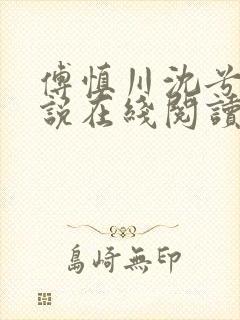 傅慎川沈兮
說在綫閱讀
島崎無印